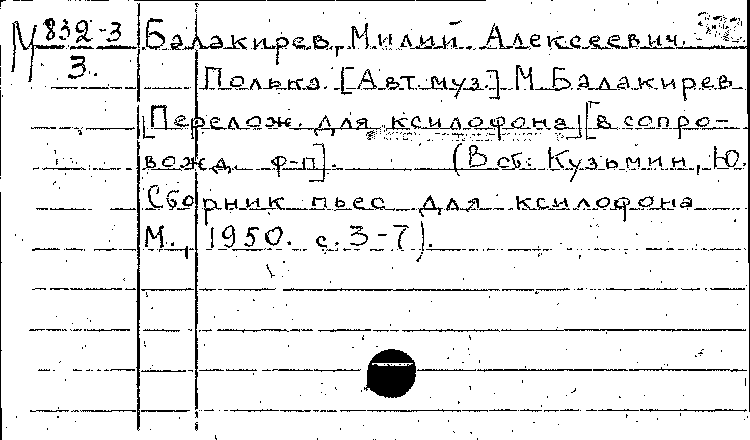 М 832-3
3.
Балакирев, Милий Алексеевич.
Полька. [Авт. муз.] М. Балакирев
[Перелож. для ксилофона] [в сопро-
вожд. ф-п]. (В сб: Кузьмин, Ю.
Сборник пьес для ксилофона
М., 1950. с. 3-7).